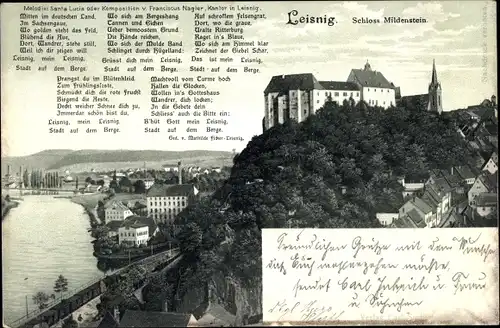 Melodie: Santa Lucia oder Composition v. Franciscus Nagler, Kantor in Leisnig.
Leisnig. Schloss Mildenstein.
Mitten im deutschen Land,
Im Sachsengaue,
Wo golden steht das Feld,
Blühend die Aue,
Dort, Wandrer, stehe still,
Weil ich dir zeigen will
Leisnig, mein Leisnig,
Stadt auf dem Berge.
Wo sich am Bergeshang
Tannen und Eichen
Ueber bemoostem Grund
Die Hände reichen,
Wo sich der Mulde Band
Schlingt durch Hügelland:
Grüsst dich mein Leisnig,
Stadt auf dem Berge.
Auf schroffem Felsengrat,
Dort, wo die graue,
Uralte Ritterburg
Raget in's Blaue,
Wo sich am Himmel klar
Zeichnet der Giebel Schar,
Das ist mein Leisnig,
Stadt auf dem Berge.
Prangst du im Blütenkleid
Zum Frühlingsfeste,
Schmückt dich die rote Frucht
Biegend die Aeste,
Deckt weicher Schnee dich zu,
Immerdar schön bist du,
Leisnig, mein Leisnig,
Stadt auf dem Berge.
Machtvoll vom Turme hoch
Hallen die Glocken,
Wollen in's Gotteshaus
Wandrer, dich locken;
In ihr Gebete dein
Schliess' auch die Bitte ein:
B'hüt Gott mein Leisnig,
Stadt auf dem Berge.
Ged. v. Mathilde Fiber-Leisnig.
Freundlichen Grüße mit dem Wunsche
sendet Carl Heinrich u. Frau